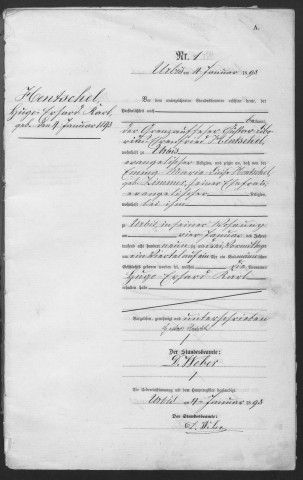 A.
Nr. 1
Urbis am 4. Januar 1893
Hentschel,
Hugo Erhard Karl,
geb. den 4. Januar 1893.
Vor dem unterzeichneten Standesbeamten erschien heute, der
Persönlichkeit nach
kannt,
der Grenzaufseher Gustav
Hentschel
wohnhaft zu Urbis
evangelischer Religion, und zeigte an, daß von der
Emma Maria Hentschel,
geb. Zimmer, seiner Ehefrau,
evangelischer Religion,
wohnhaft bei ihm
zu Urbis, in seiner Wohnung
am vierten Januar des Jahres
tausend acht hundert neunzig und drei, Vormittags
um ein Viertel auf ein Uhr ein Kind männlichen
Geschlechts geboren worden sei, welches die Vornamen
Hugo Erhard Karl
erhalten habe
Vorgelesen, genehmigt und unterschrieben
Der Standesbeamte:
D. Weber
Die Uebereinstimmung mit dem Hauptregister beglaubigt
Urbis am 4. Januar 1893
Der Standesbeamte:
D. Weber